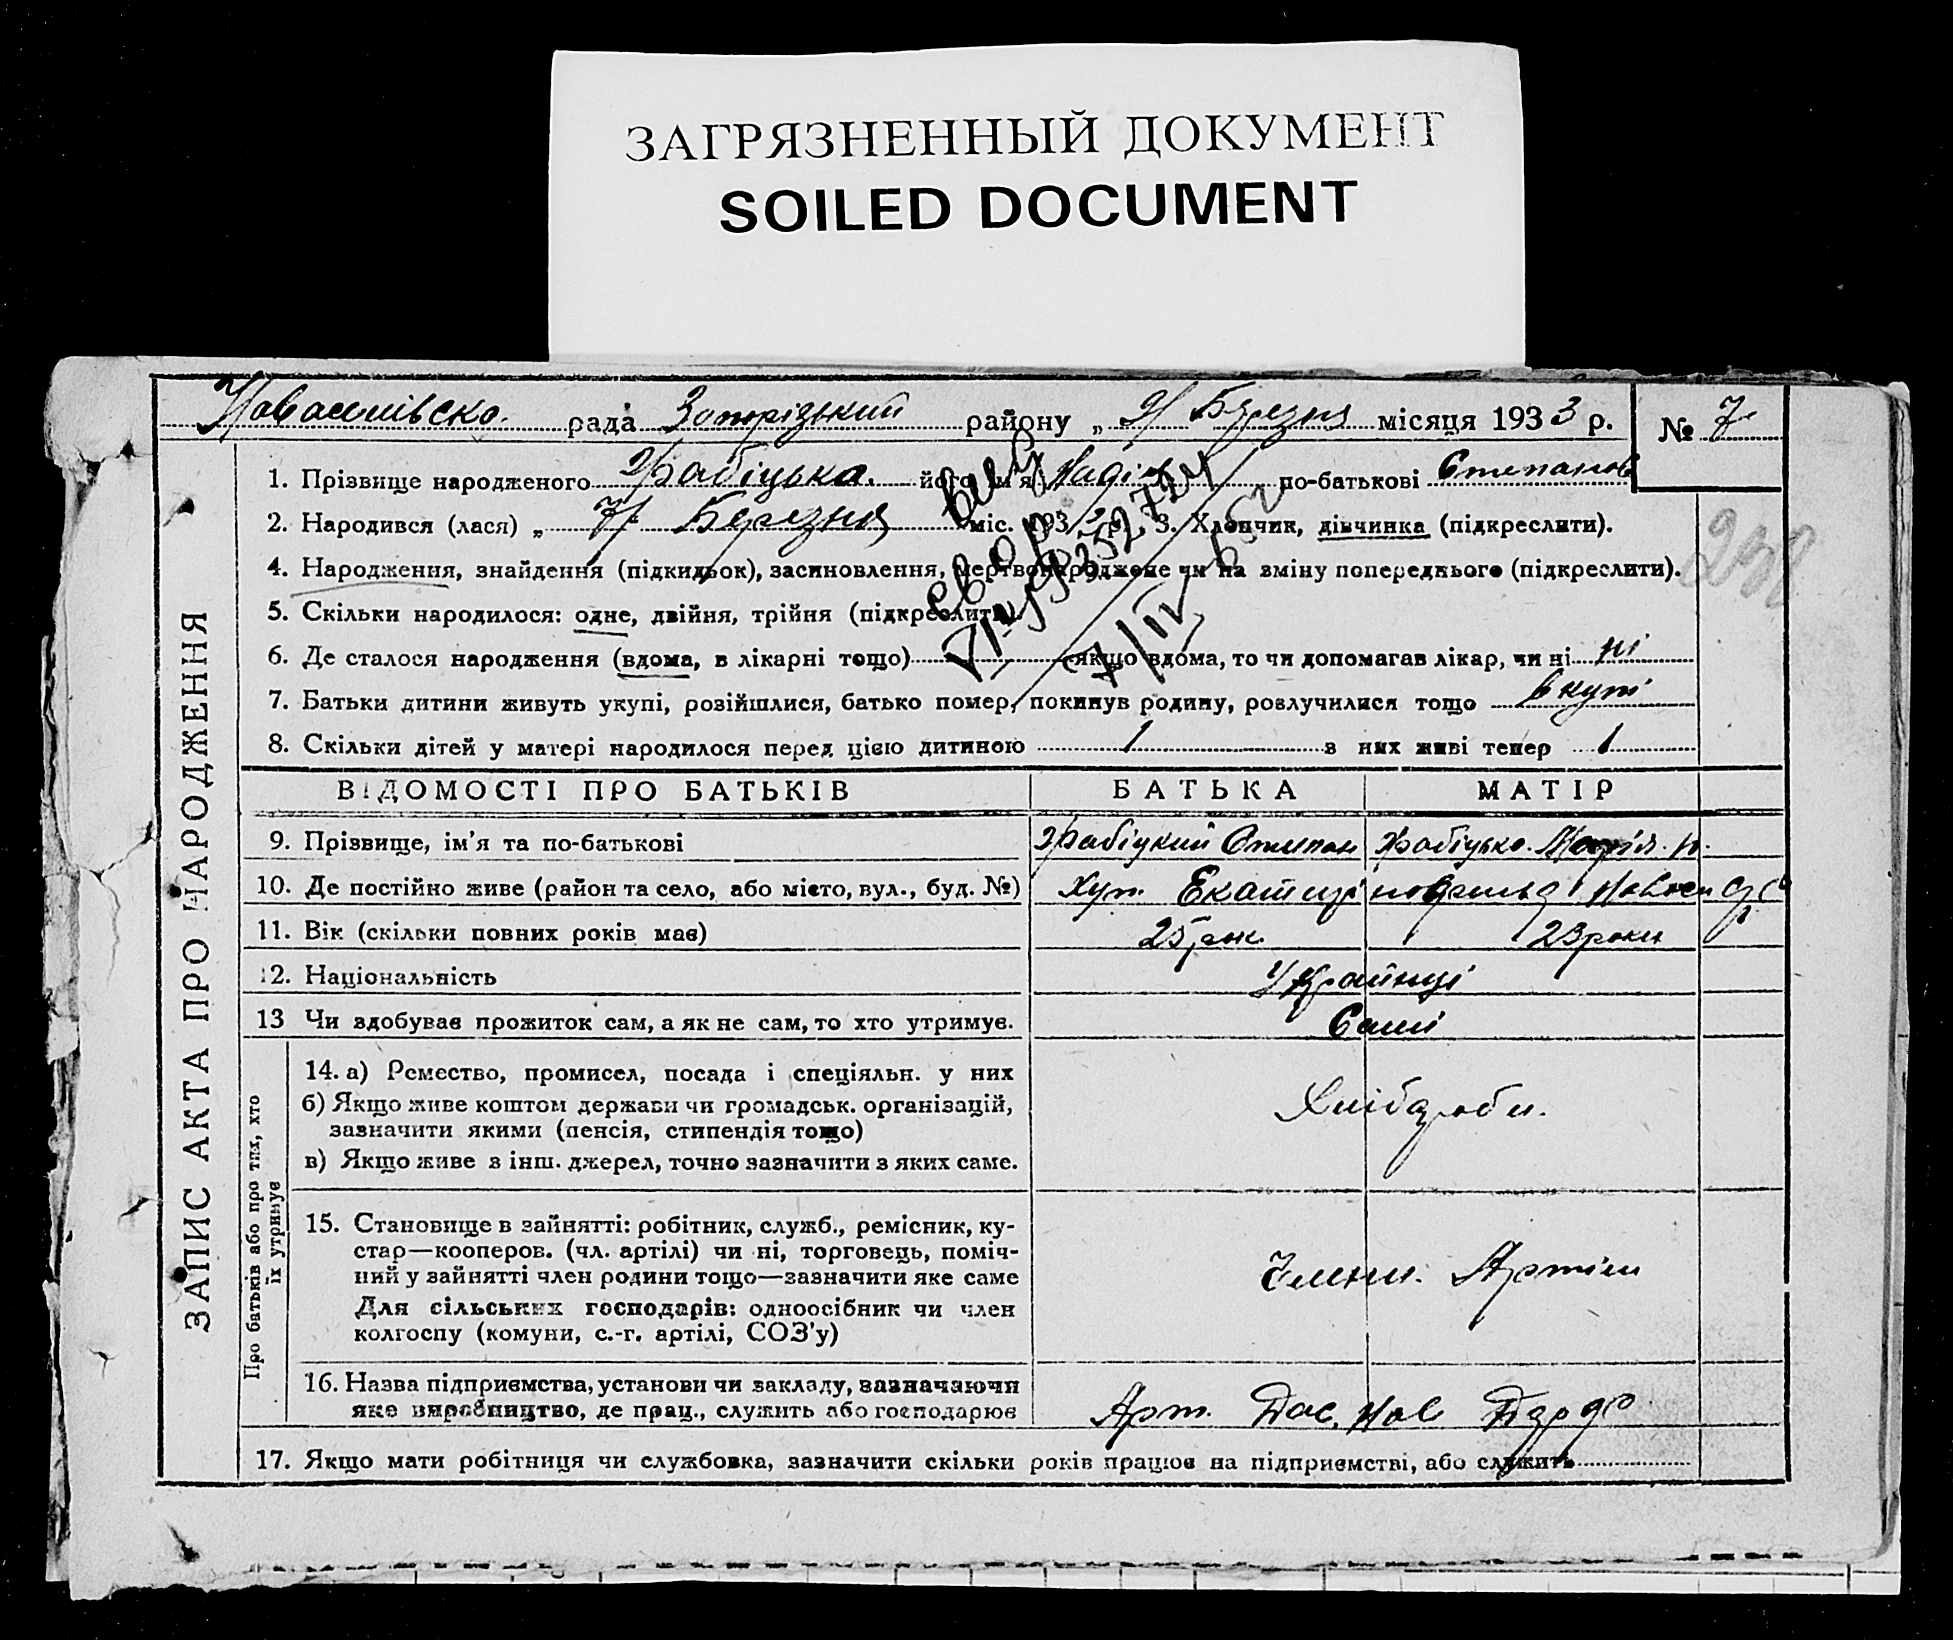 ЗАГРЯЗНЕННЫЙ ДОКУМЕНТ
SOILED DOCUMENT
рада Запорізький району „ 21 Березня місяця 1933 р. № 7
ЗАПИС АКТА ПРО НАРОДЖЕННЯ
1. Прізвище народженого Грабіцька. його ім'я Надія по-батькові Степанов
2. Народився (лася) „ 7 Березня міс. 1933 р. 3. Хлопчик, дівчинка (підкреслити).
4. Народження, знайдення (підкидьок), засиновлення, мертвонароджене чи на зміну попереднього (підкреслити).
5. Скільки народилося: одне, двійня, трійня (підкреслити).
6. Де сталося народження (вдома, в лікарні тощо) якщо вдома, то чи допомагав лікар, чи ні ні
7. Батьки дитини живуть укупі, розійшлися, батько помер, покинув родину, розлучилися тощо вкупі
8. Скільки дітей у матері народилося перед цією дитиною 1 з них живі тепер 1
ВІДОМОСТІ ПРО БАТЬКІВ БАТЬКА МАТІР
9. Прізвище, ім'я та по-батькові Грабіцкий Степан Грабіцько. Марія. Н.
10. Де постійно живе (район та село, або місто, вул., буд. №) Хут.
11. Вік (скільки повних років має) 25 рок 23 роки
12. Національність Українці
13 Чи здобуває прожиток сам, а як не сам, то хто утримує. Самі
Про батьків або про тих, хто їх утримує
14. а) Ремество, промисел, посада і спеціяльн. у них
б) Якщо живе коштом держави чи громадськ. організацій,
зазначити якими (пенсія, стипендія тощо)
в) Якщо живе з інш. джерел, точно зазначити з яких саме.
Хліборобы.
15. Становище в зайнятті: робітник, служб., ремісник, ку-
стар—кооперов. (чл. артілі) чи ні, торговець, поміч-
ний у зайнятті член родини тощо—зазначити яке саме
Для сільських господарів: одноосібник чи член
колгоспу (комуни, с.-г. артілі, СОЗ'у)
Члени. Артіли
16. Назва підприємства, установи чи закладу, зазначаючи
яке виробництво, де прац., служить або господарює
Арт.
17. Якщо мати робітниця чи службовка, зазначити скільки років працює на підприємстві, або служить